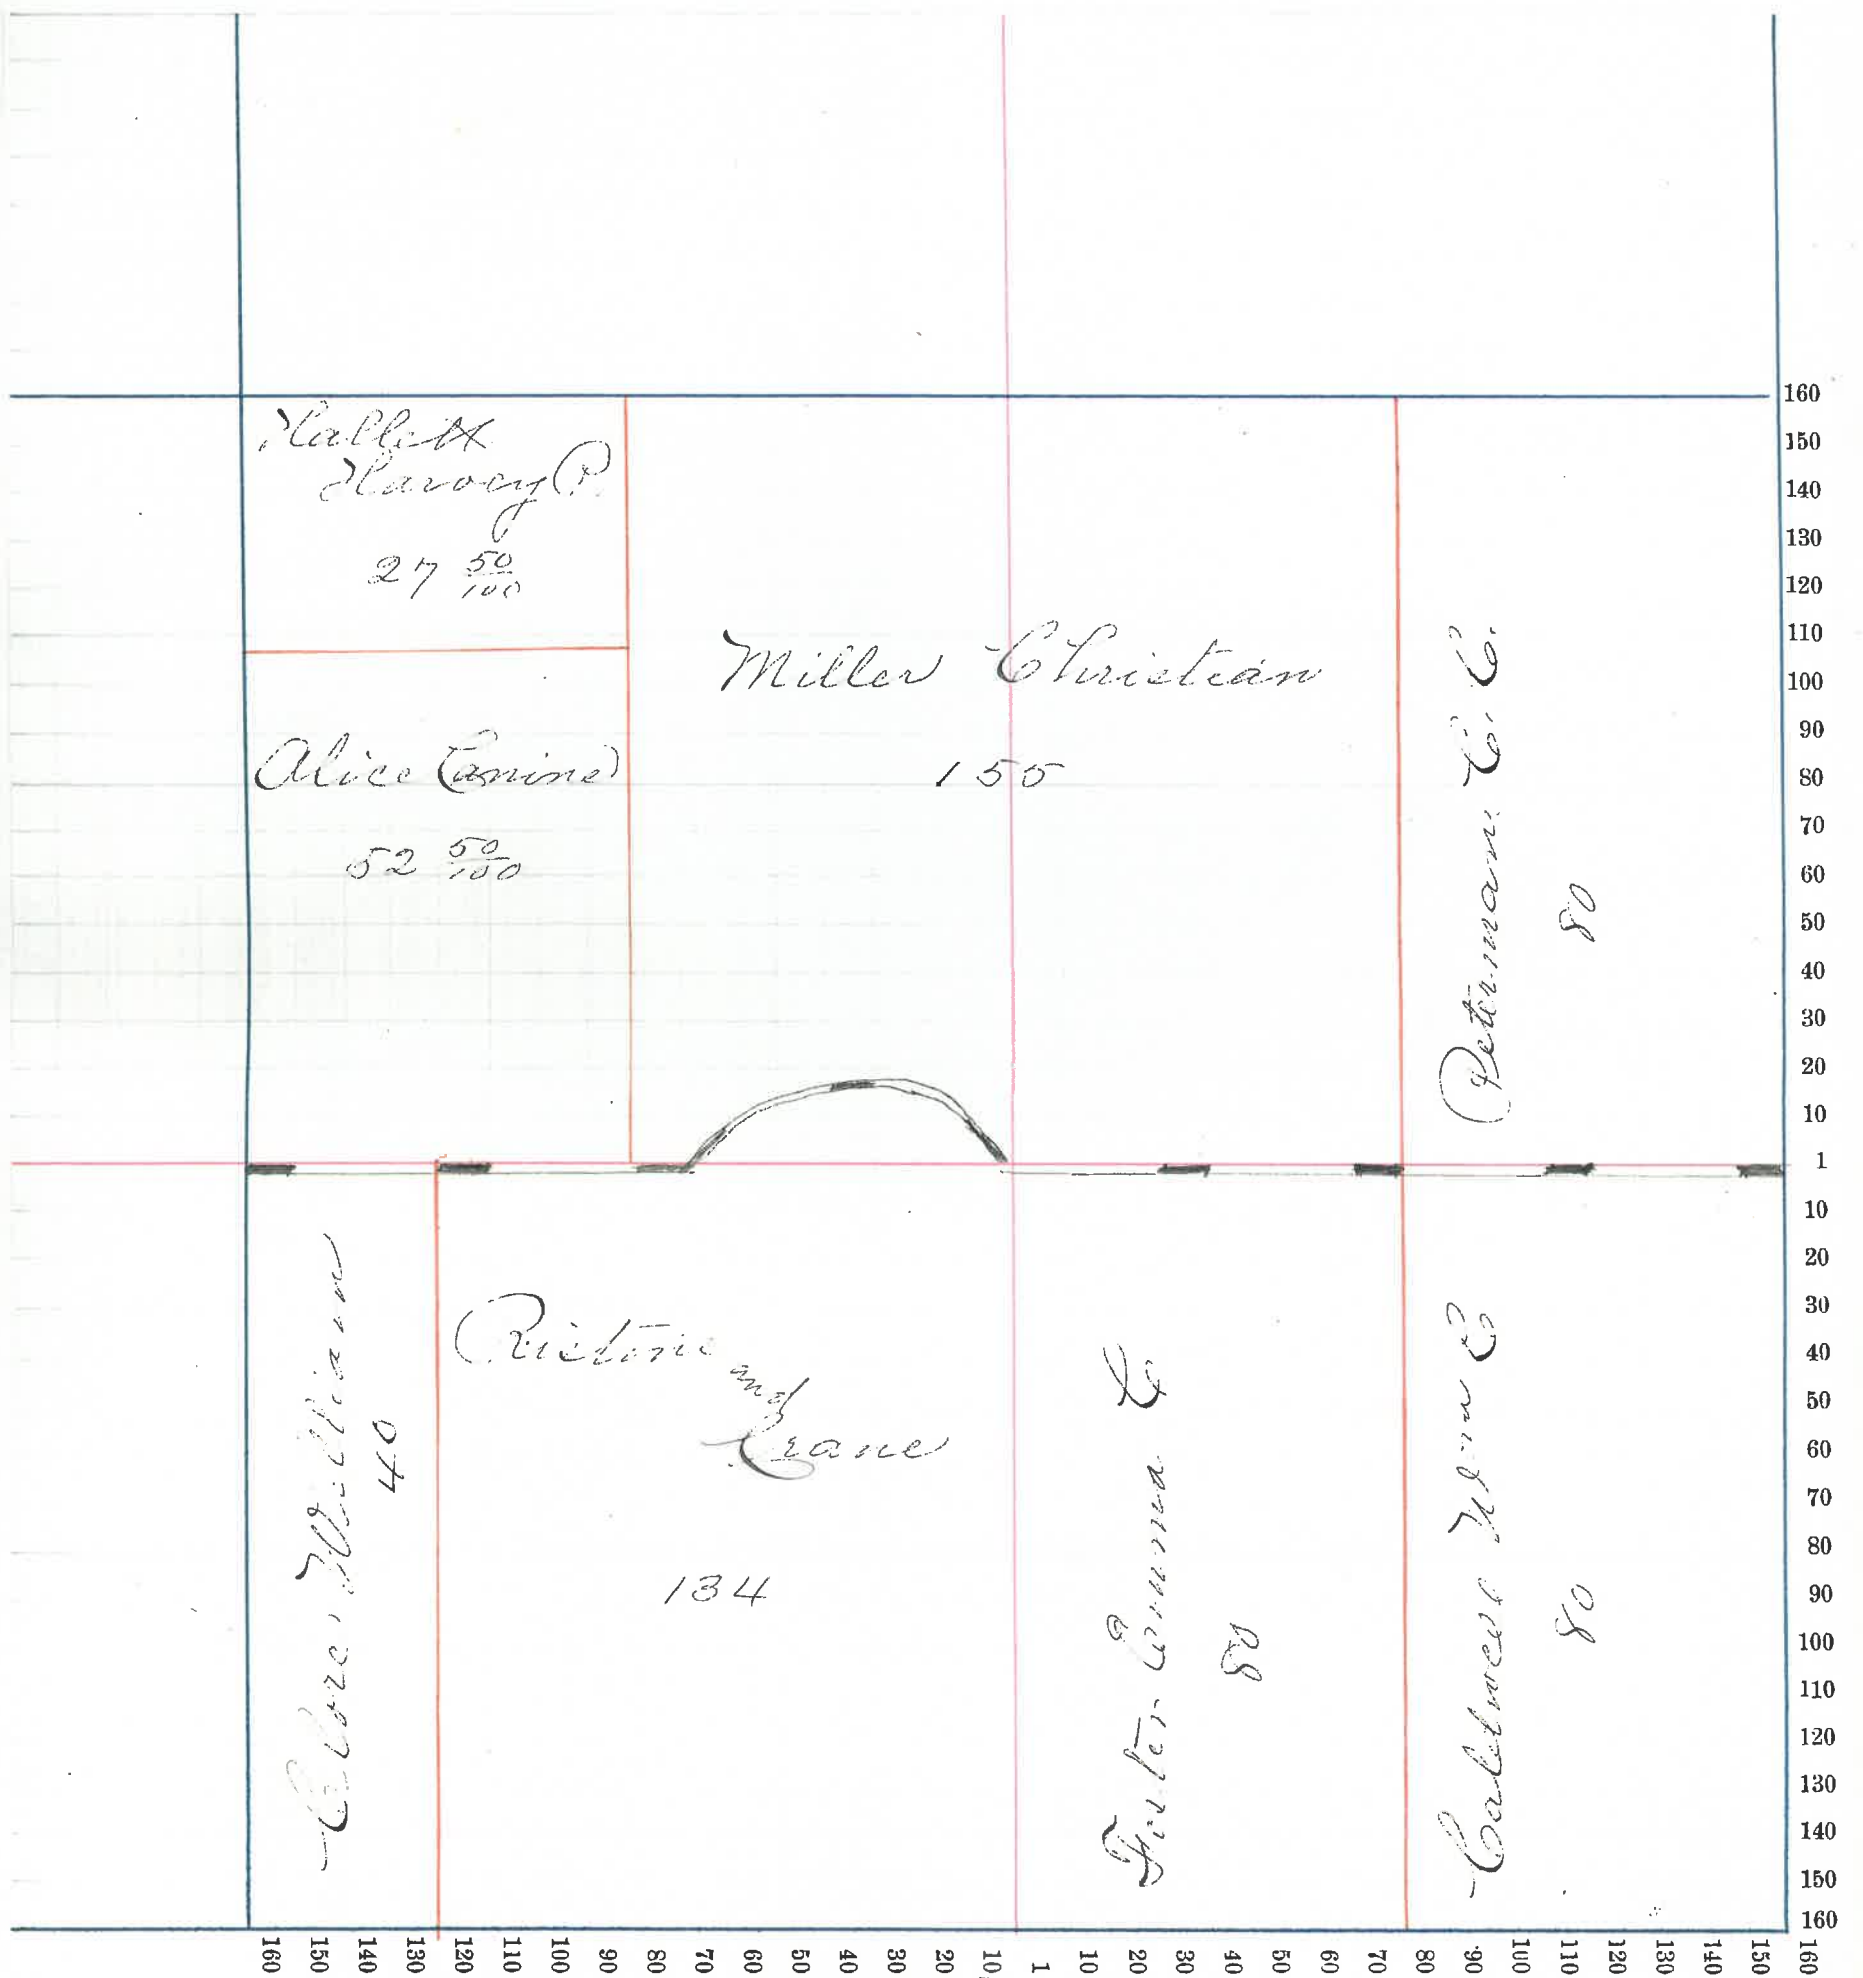 Hallett
Harvey P.
27 50/100
Alice Canine
52 50/100
Miller Christian
155
Petermann C. C.
80
Clore William
40
and
Crane
134
Foster Emma E
80
Caldwell
80
160
150
140
130
120
110
100
90
80
70
60
50
40
30
20
10
1
10
20
30
40
50
60
70
80
90
100
110
120
130
140
150
160
160 150 140 130 120 110 100 90 80 70 60 50 40 30 20 10 1 10 20 30 40 50 60 70 80 90 100 110 120 130 140 150 160